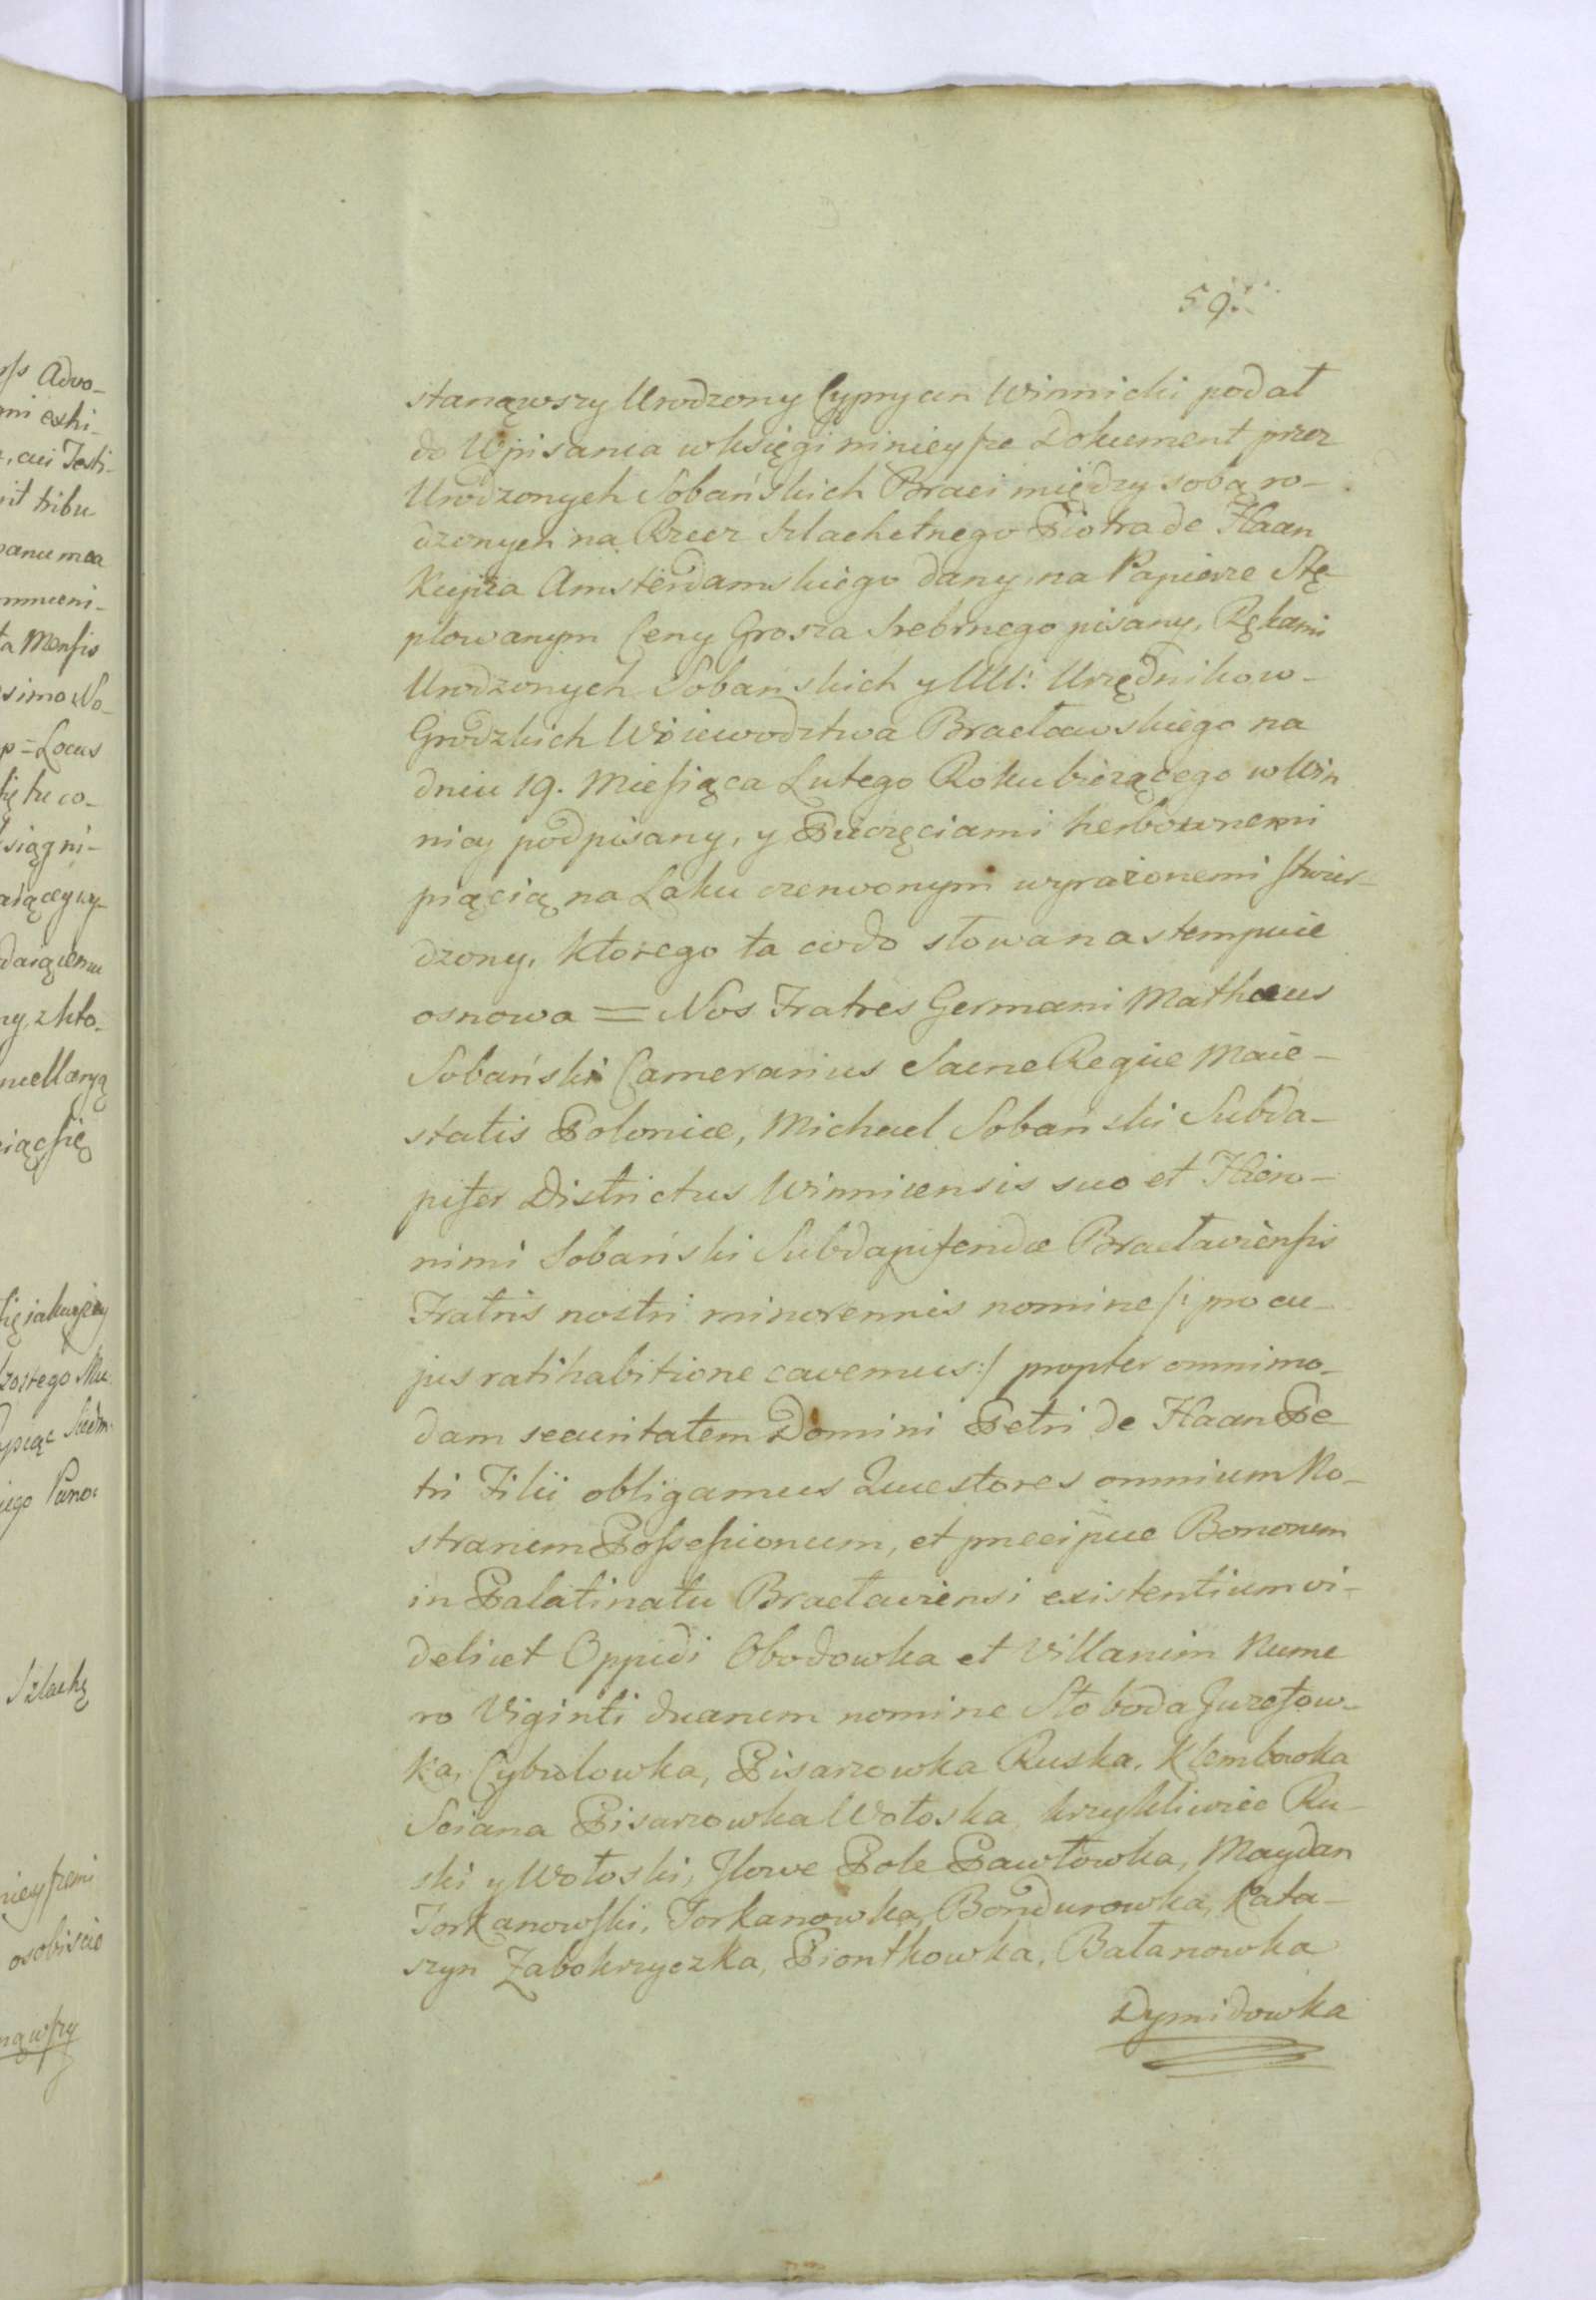 59.
stanąwszy Urodzony Cypryan Winnicki podał
do Wpisania w księgi ninieysze Dokument przez
Urodzonych Sobańskich Braci między sobą ro-
dzonych na Rzecz Szlachetnego Piotra de Haan
Kupca Amsterdamskiego dany, na Papierze Stę-
plowanym Ceny Grosza Srebrnego pisany, Rękami
Urodzonych Sobańskich y UU: Urzędnikow-
Grodzkich Woiewodztwa Bracławskiego na
dniu 19. Miesiąca Lutego Roku bieżącego w Win
nicy podpisany, y Pieczęciami herbownemi
piącią na Laku czerwonym wyrażonemi stwier-
dzony, ktorego ta co do słowa nastempuie
osnowa = Nos Fratres Germani Mathæus
Sobański Camerarius Sacræ Regiæ Maie-
statis Poloniæ, Michael Sobański Subda-
pifer Districtus Winnicensis suo et Hiero-
nimi Sobański Subdapiferidæ Bracłaviensis
Fratris nostri minorennis nomine /: pro cu-
jus ratihabitione cavemus :/ propter omnimo-
dam securitatem Domini Petri de Haan Pe
tri Filii obligamus Quæstores omnium No-
strarum Possessionum, et præcipue Bonorum
in Palatinatu Bracłaviensi existentium vi-
delicet Oppidi Obodowka et Villarum Nume
ro Viginti duarum nomine Słoboda Gurżołow-
ka, Cybulowka, Pisarzowka Ruska, Klembowka
Sciana Pisarzowka Wołoska, krzykliwiec Ru-
ski y Wołoski, Jłowe Pole Pawłowka, Maydan
Torkanowski, Torkanowka, Bondurowka, Kata-
szyn Zabokrzyczka, Piontkowka, Bałanowka
Dymidowka
ss Advo-
exhi-
cui Testi-
tribu
Mensis
simo No-
= Locus
się tu co-
siąg ni-
się
Szlachę
osobiscie